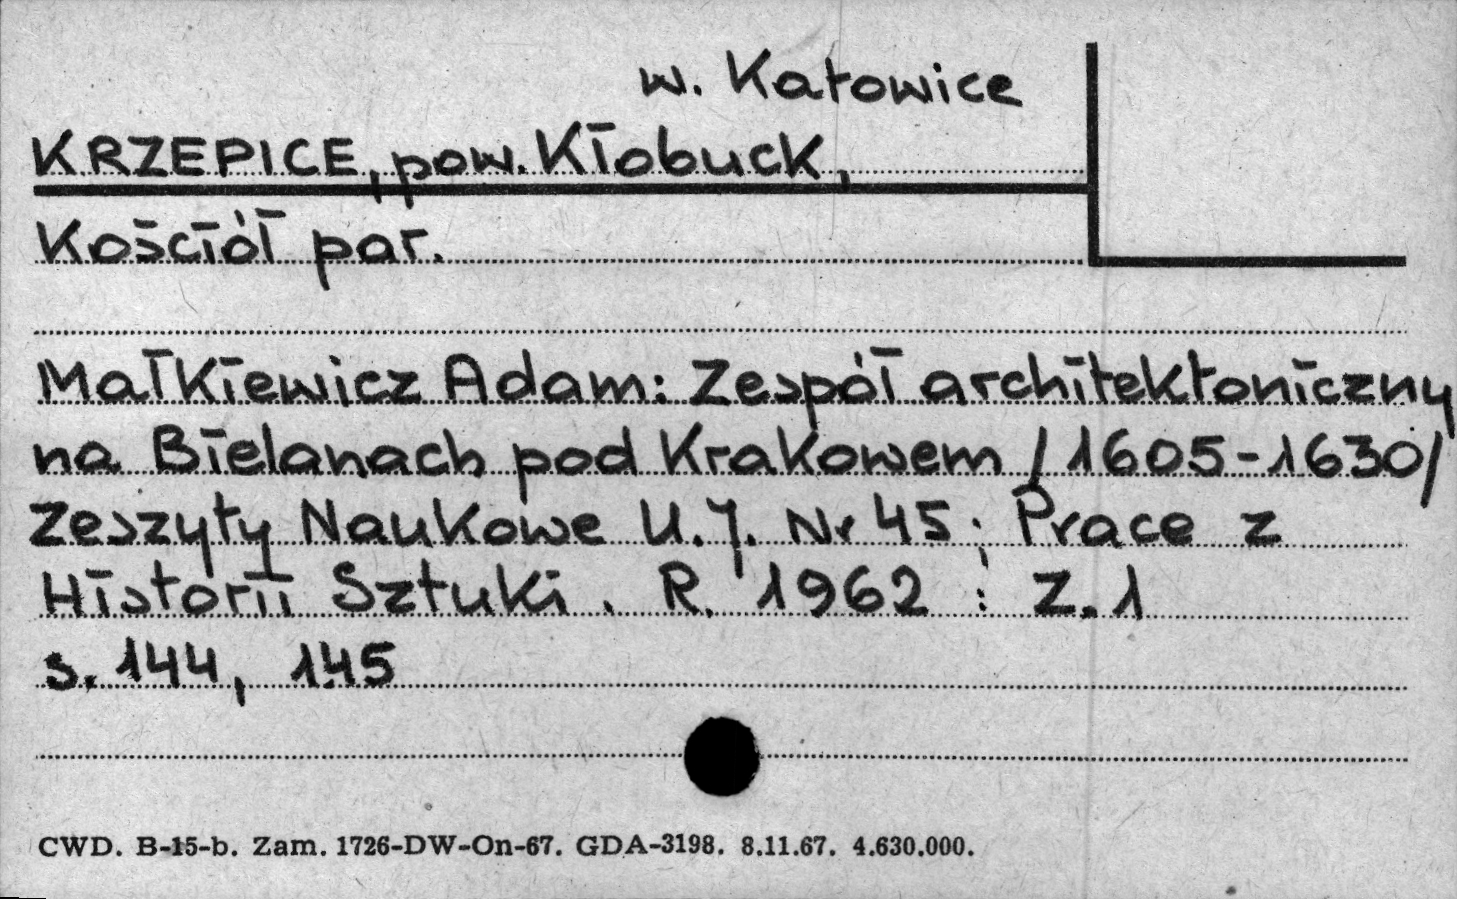 w. Katowice
KRZEPICE, pow. Kłobuck,
Kościół par.
Małkiewicz Adam: Zespół architektoniczny
na Bielanach pod Krakowem /1605-1630/
Zeszyty Naukowe U.J. Nr 45; Prace z
Historii Sztuki. R. 1962 : Z. 1
s. 144, 145
CWD. B-15-b. Zam. 1726-DW-On-67. GDA-3198. 8.11.67. 4.630.000.